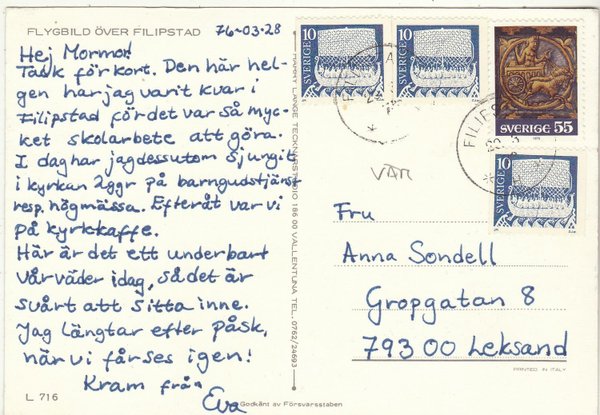 FLYGBILD ÖVER FILIPSTAD
76-03-28
Hej Mormor!
Tack för kort. Den här hel-
gen har jag varit kvar i
Filipstad för det var så myc-
ket skolarbete att göra.
I dag har jag dessutom sjungit
i kyrkan 2ggr på barngudstjänst
resp. högmässa. Efteråt var vi
på kyrkkaffe.
Här är det ett underbart
vårväder idag, så det är
svårt att sitta inne.
Jag längtar efter påsk,
när vi får ses igen!
Kram från
Eva
L 716
Godkänt av Försvarsstaben
LANGE TECKNARSTUDIO 186 00 VALLENTUNA TEL. 0762/24693
SVERIGE 10
SVERIGE 10
SVERIGE 55
SVERIGE 10
FILIPS
VÄR
Fru
Anna Sondell
Gropgatan 8
793 00 Leksand
PRINTED IN ITALY